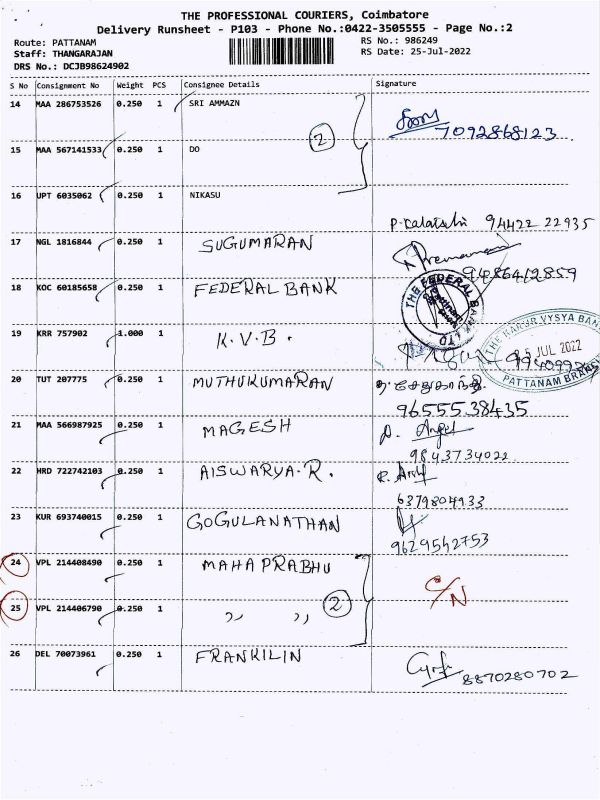 THE PROFESSIONAL COURIERS, Coimbatore
Delivery Runsheet - P103 - Phone No.:0422-3505555 - Page No.:2
Route: PATTANAM RS No.: 986249
Staff: THANGARAJAN RS Date: 25-Jul-2022
DRS No.: DCJB98624902
S No Consignment No Weight PCS Consignee Details Signature
14 MAA 286753526 0.250 1 SRI AMMAZN
2 7092868123
15 MAA 567141533 0.250 1 DO
16 UPT 6035062 0.250 1 NIKASU
94422 22935
17 NGL 1816844 0.250 1 SUGUMARAN
9486412859
18 KOC 60185658 0.250 1 FEDERAL BANK
THE FEDERAL BANK LTD
Pattanam
19 KRR 757902 1.000 1 K.V.B.
THE KARUR VYSYA BANK
JUL 2022
PATTANAM BRANCH
20 TUT 207775 0.250 1 MUTHUKUMARAN
96555 38435
21 MAA 566987925 0.250 1 MAGESH
D. Angel
9843734022
22 HRD 722742103 0.250 1 AISWARYA.R.
6379804933
23 KUR 693740015 0.250 1 GOGULANATHAN
9629542753
24 VPL 214408490 0.250 1 MAHA PRABHU
C/N
25 VPL 214406790 0.250 1 ,, ,, 2
26 DEL 70073961 0.250 1 FRANKILIN
8870280702